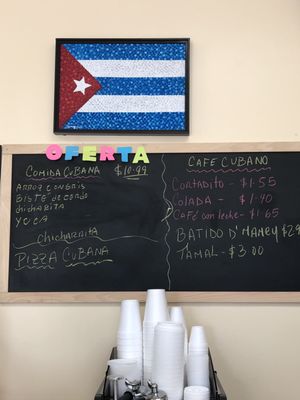 OFERTA
COMIDA CUBANA $10.99
ARROZ CONGRIS
BISTE DE CERDO
CHICHARITA
YUCA
Chicharrita
PIZZA CUBANA
CAFE CUBANO
CORTADITO - $1.55
COLADA - $1.40
CAFé con leche - $1.65
BATIDO D' MAMEY
TAMAL - $3.00